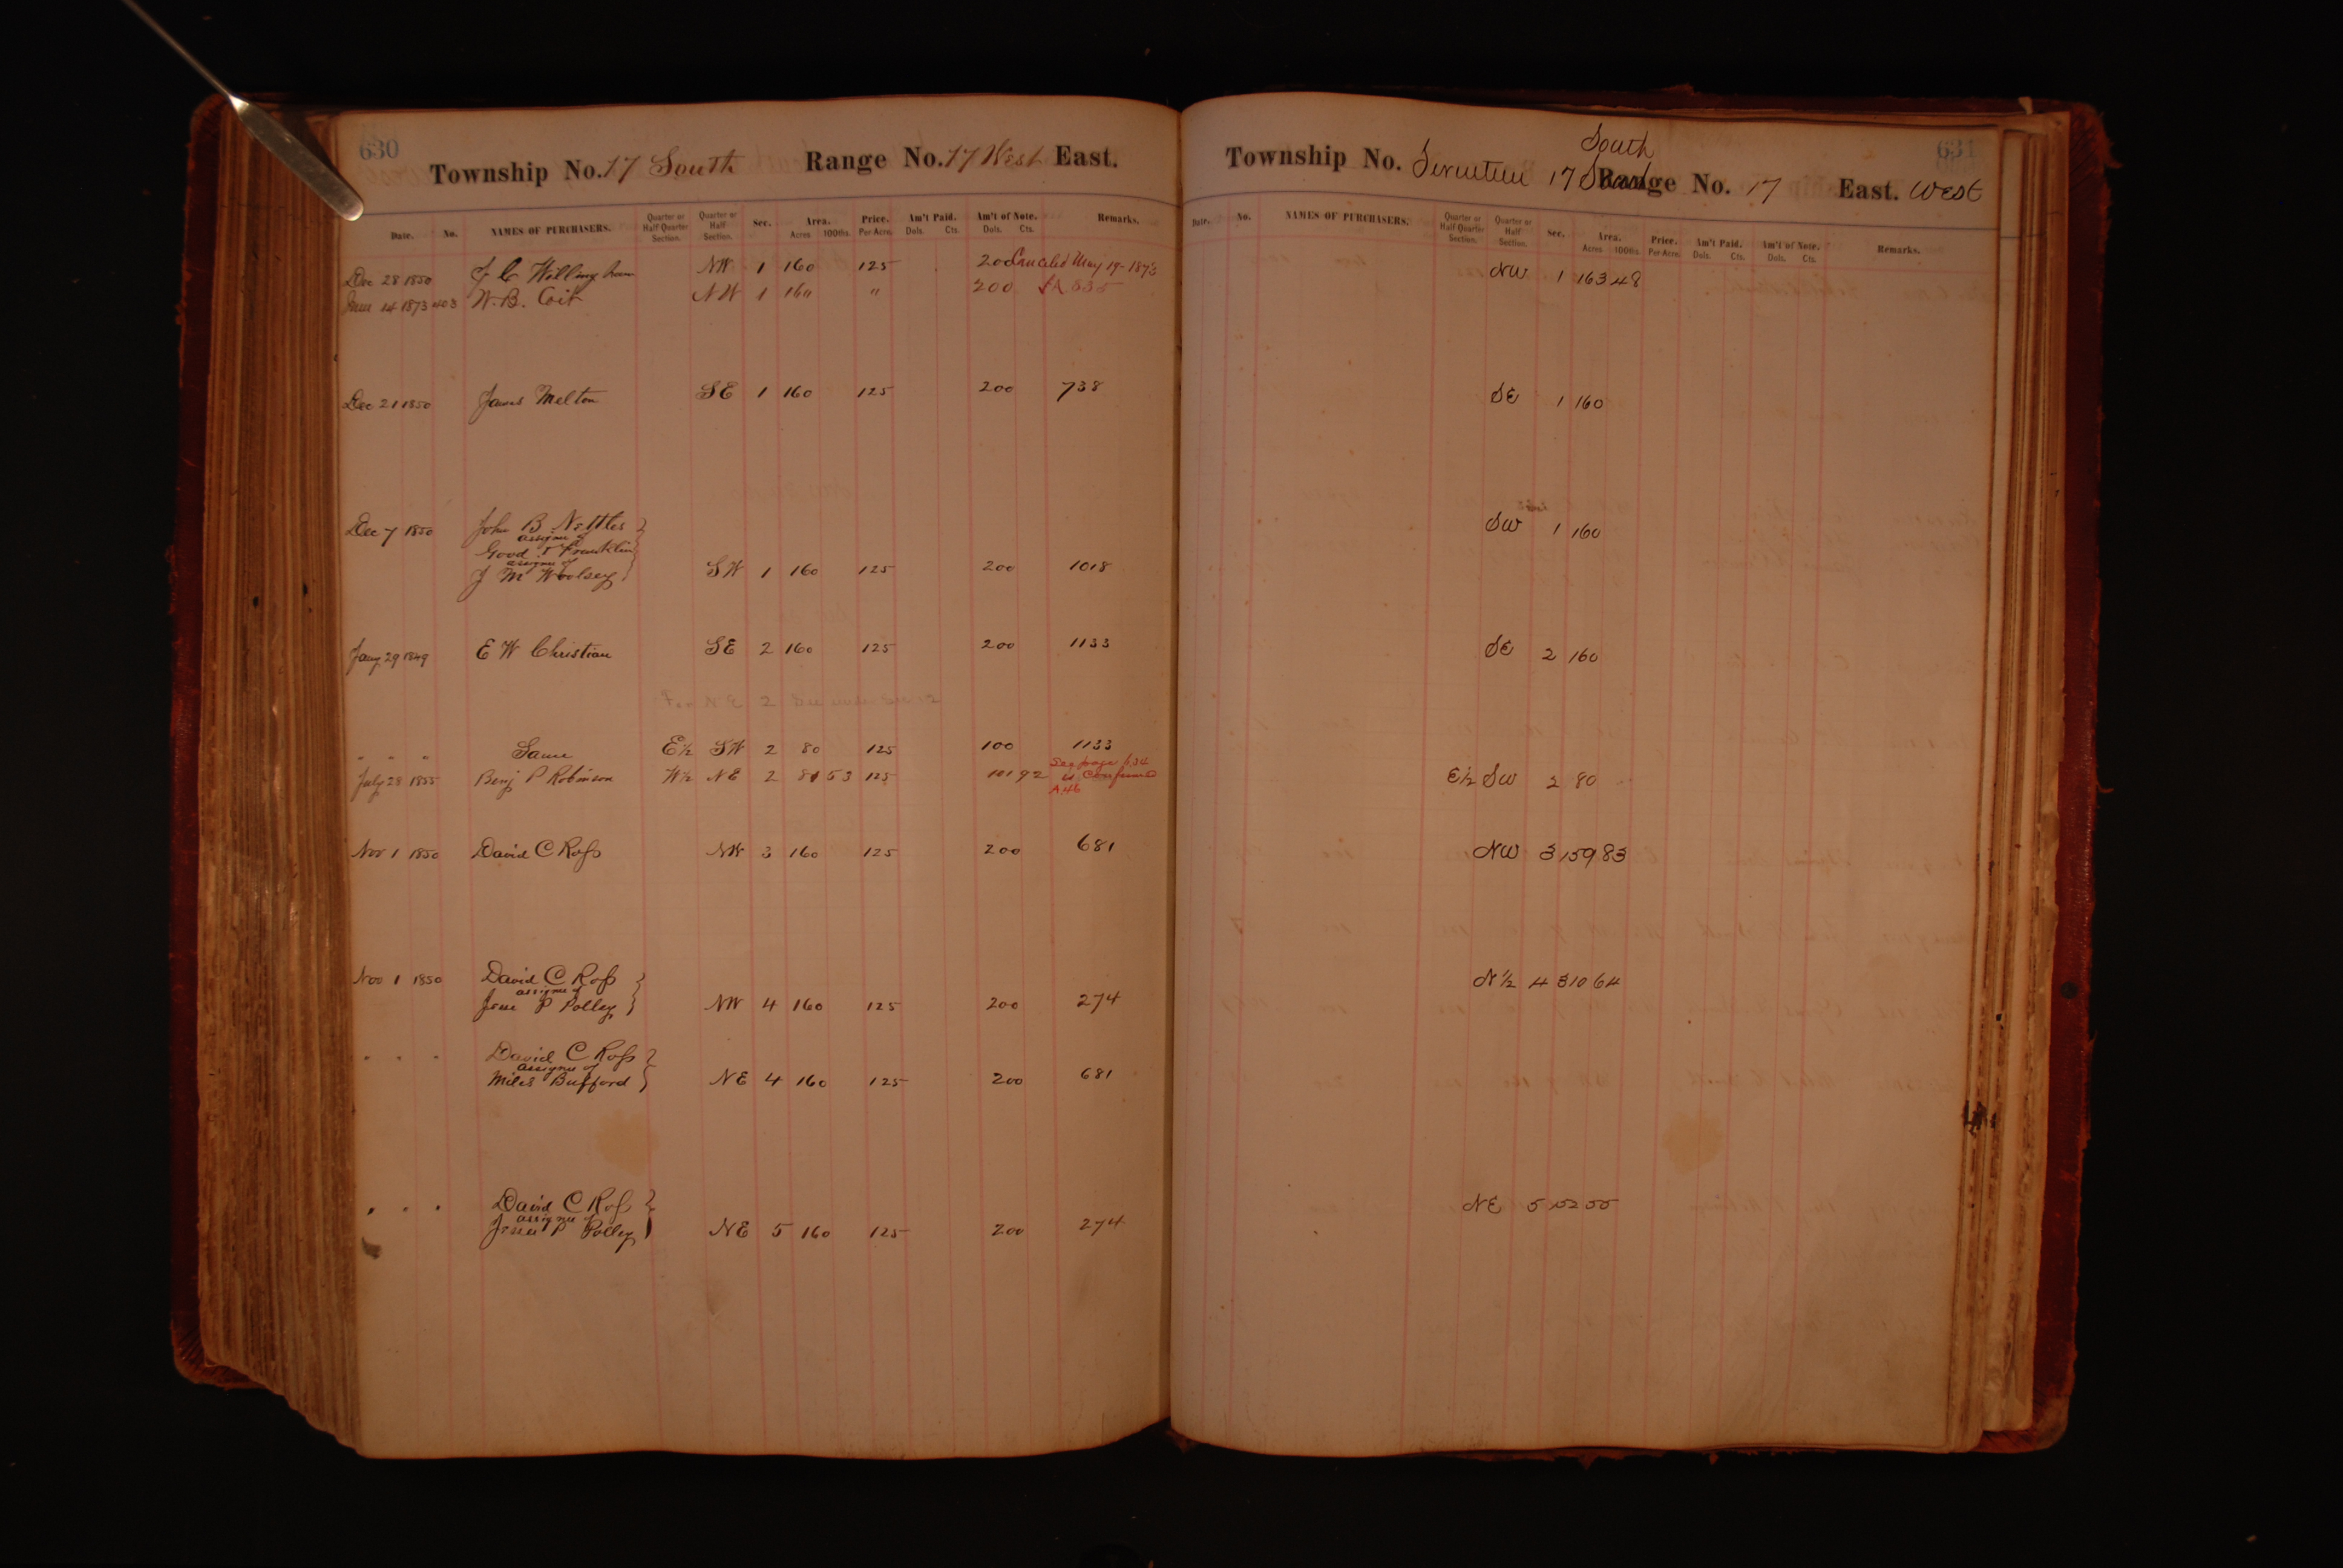 630
Township No. 17 South Range No. 17 West East.
Date. No. NAMES OF PURCHASERS. Quarter or Half Quarter Section. Quarter or Half Section. Sec. Area. Acres 100ths. Price. Per Acre. Am't Paid. Dols. Cts. Am't of Note. Dols. Cts. Remarks.
Dec 28 1850 J C Willingham NW 1 160 125 200 Canceled May 19 - 1873
June 14 1873 403 W. B. Coit NW 1 160 " 200 A 835
Dec 21 1850 James Melton SE 1 160 125 200 738
Dec 7 1850 John B Nettles
assignee of
Good & Franklin
assignee of
J M Woolsey SW 1 160 125 200 1018
Jany 29 1849 E W Christian SE 2 160 125 200 1133
For NE 2 See under Sec 12
" " " Same E½ SW 2 80 125 100 1133
July 28 1855 Benj P Robinson W½ NE 2 81 53 125 101 92 See page 634
is Confirmed
A 46
Nov 1 1850 David C Ross NW 3 160 125 200 681
Nov 1 1850 David C Ross
assignee of
Jesse P Polley NW 4 160 125 200 274
" " " David C Ross
assignee of
Miles Bufford NE 4 160 125 200 681
" " " David C Ross
assignee of
Jesse P Polley NE 5 160 125 200 274
631
South
Township No. 17 Range No. 17 East. West
Date. No. NAMES OF PURCHASERS. Quarter or Half Quarter Section. Quarter or Half Section. Sec. Area. Acres 100ths. Price. Per Acre. Am't Paid. Dols. Cts. Am't of Note. Dols. Cts. Remarks.
NW 1 163 48
SE 1 160
SW 1 160
SE 2 160
E½ SW 2 80
NW 3 159 83
N½ 4 310 64
NE 5 55